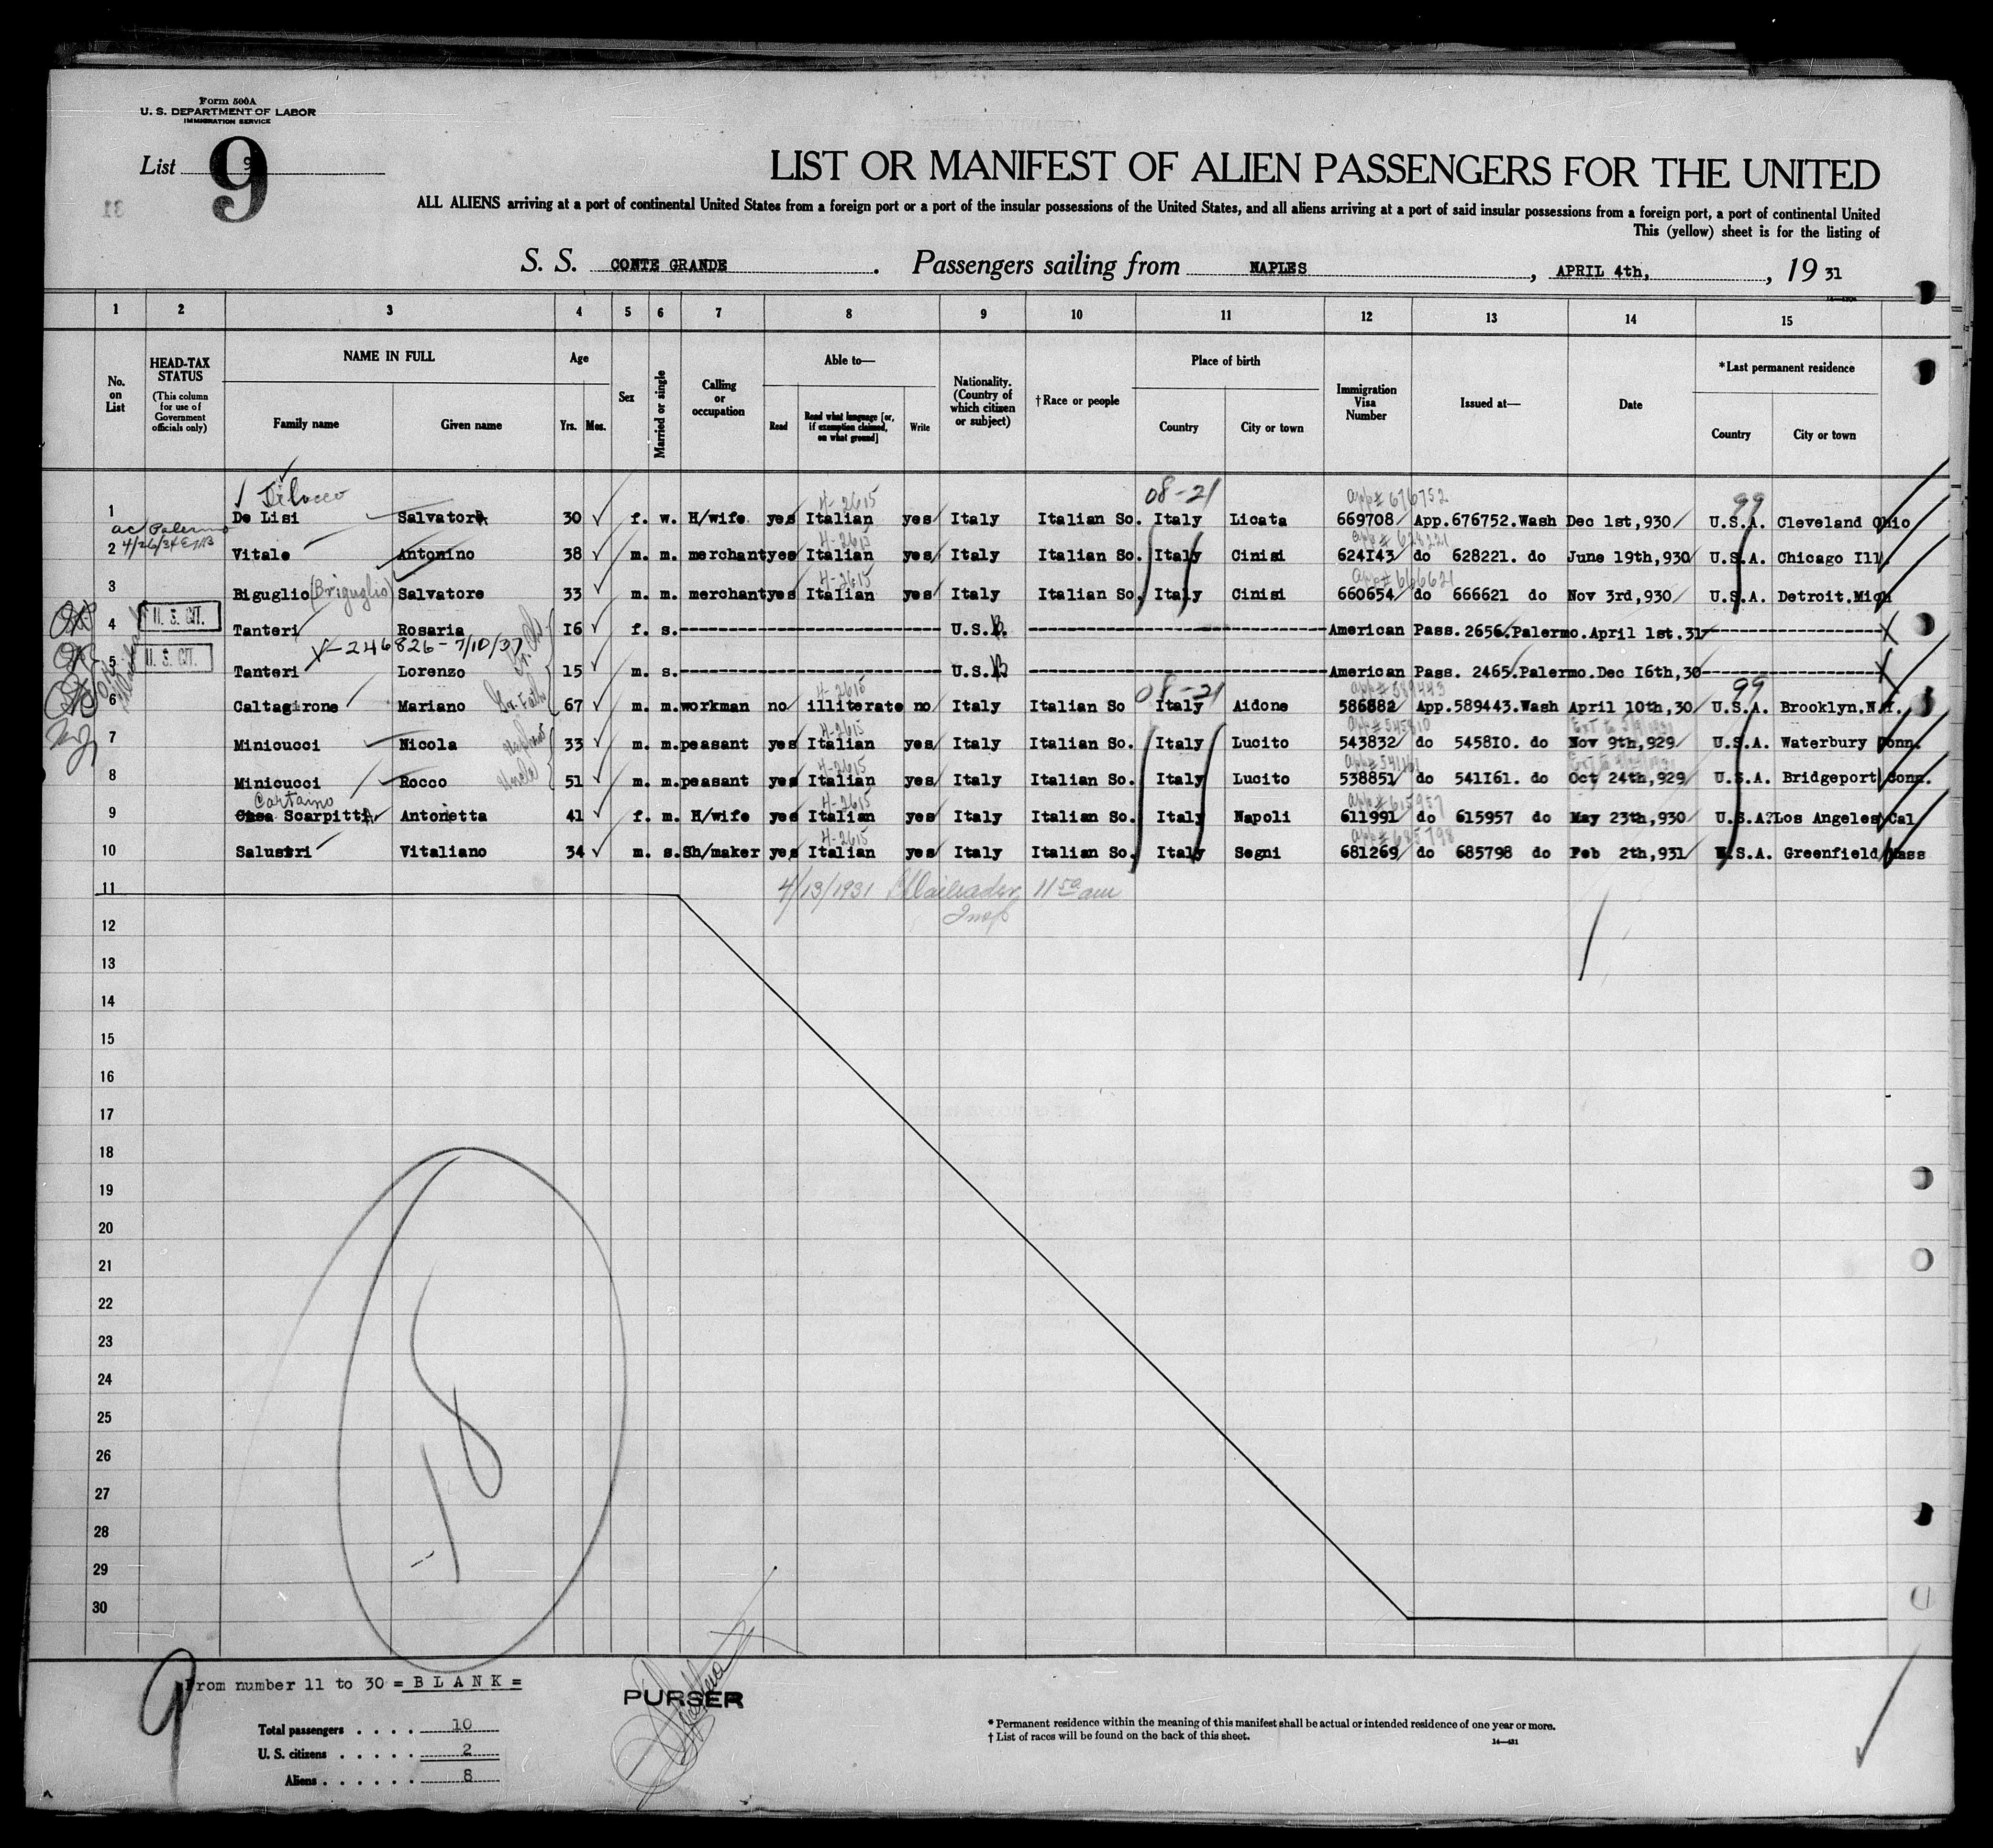 Form 500A
U. S. DEPARTMENT OF LABOR
IMMIGRATION SERVICE
List 9
9
LIST OR MANIFEST OF ALIEN PASSENGERS FOR THE UNITED
ALL ALIENS arriving at a port of continental United States from a foreign port or a port of the insular possessions of the United States, and all aliens arriving at a port of said insular possessions from a foreign port, a port of continental United
This (yellow) sheet is for the listing of
S. S. CONTE GRANDE. Passengers sailing from NAPLES, APRIL 4th, , 19 31
1 2 3 4 5 6 7 8 9 10 11 12 13 14 15
No. on List
HEAD-TAX STATUS
(This column for use of Government officials only)
NAME IN FULL
Family name Given name
Age
Yrs. Mos.
Sex
Married or single
Calling or occupation
Able to—
Read Read what language [or, if exemption claimed, on what ground] Write
Nationality. (Country of which citizen or subject)
† Race or people
Place of birth
Country City or town
Immigration Visa Number
Issued at—
Date
*Last permanent residence
Country City or town
4-2615 08-21 App# 676752 99
1 De Lisi Salvatora 30 f. w. H/wife yes Italian yes Italy Italian So. Italy Licata 669708 App.676752.Wash Dec 1st,930 U.S.A. Cleveland Ohio
ac/Palermo
4/26/34
4-2615 App# 628221
2 Vitale Antonino 38 m. m. merchant yes Italian yes Italy Italian So. Italy Cinisi 624143 do 628221. do June 19th,930 U.S.A. Chicago Ill.
4-2615 App# 666621
3 Biguglio (Briguglio) Salvatore 33 m. m. merchant yes Italian yes Italy Italian So. Italy Cinisi 660654 do 666621 do Nov 3rd,930 U.S.A. Detroit.Mich
4 U. S. CIT. Tanteri Rosaria 16 f. s. U.S.B. American Pass. 2656.Palermo.April 1st.31
V-246826-7/10/37
5 U. S. CIT. Tanteri Lorenzo 15 m. s. U.S.B American Pass. 2465.Palermo.Dec 16th,30
4-2615 08-21 App# 589443 99
6 Caltagirone Mariano 67 m. m. workman no illiterate no Italy Italian So Italy Aidone 586882 App.589443.Wash April 10th,30 U.S.A. Brooklyn.N.Y.
4-2615 App# 545810
7 Minicucci Nicola 33 m. m. peasant yes Italian yes Italy Italian So. Italy Lucito 543832 do 545810. do Nov 9th,929 U.S.A. Waterbury Conn.
Uncle
4-2615 App# 541161
8 Minicucci Rocco 51 m. m. peasant yes Italian yes Italy Italian So. Italy Lucito 538851 do 541161. do Oct 24th,929 U.S.A. Bridgeport Conn.
4-2615 App# 615957
9 Scarpitta Antonetta 41 f. m. H/wife yes Italian yes Italy Italian So. Italy Napoli 611991 do 615957 do May 23th,930 U.S.A. Los Angeles Cal
4-2615 App# 685798
10 Salustri Vitaliano 34 m. s. Sh/maker yes Italian yes Italy Italian So. Italy Segni 681269 do 685798 do Feb 2th,931 U.S.A. Greenfield Mass
11 4/13/1931 11 50 am
Insp
12
13
14
15
16
17
18
19
20
21
22
23
24
25
26
27
28
29
30
18
9
From number 11 to 30 = B L A N K =
Total passengers . . . . 10
U. S. citizens . . . . . 2
Aliens . . . . . . 8
PURSER
* Permanent residence within the meaning of this manifest shall be actual or intended residence of one year or more.
† List of races will be found on the back of this sheet.
14—421